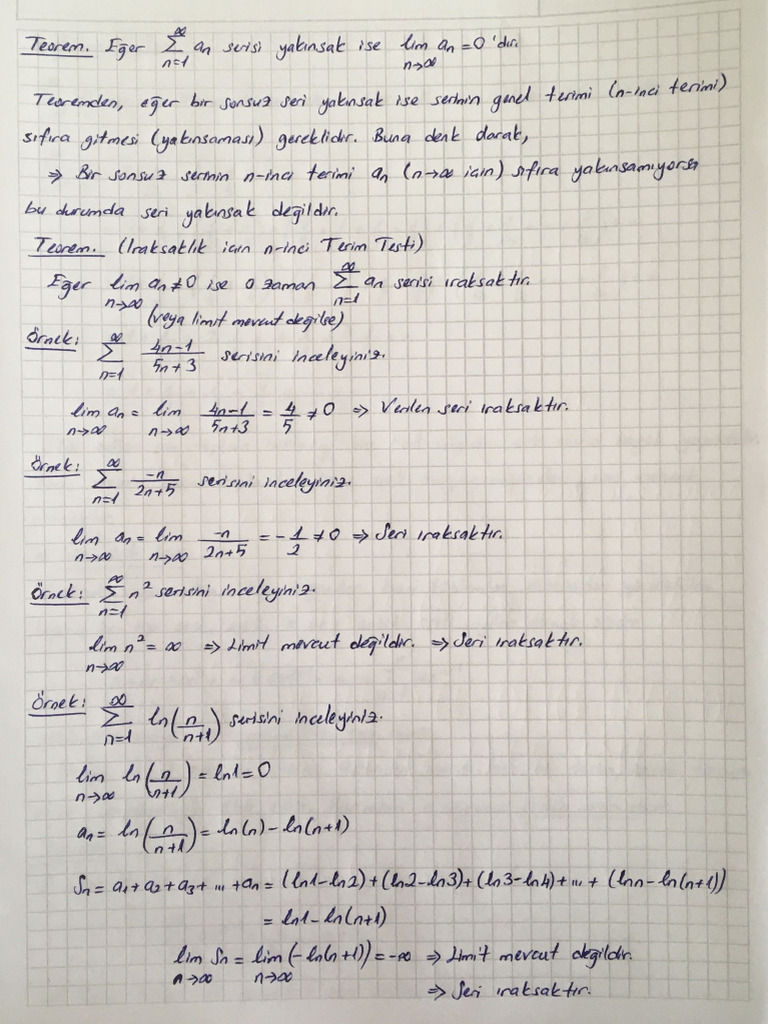 Teorem. Eğer ∞∑n=1 an serisi yakınsak ise lim n→∞ an = 0 'dır.
Teoremden, eğer bir sonsuz seri yakınsak ise serinin genel terimi (n-inci terimi)
sıfıra gitmesi (yakınsaması) gereklidir. Buna denk olarak,
⇒ Bir sonsuz serinin n-inci terimi an (n→∞ için) sıfıra yakınsamıyorsa
bu durumda seri yakınsak değildir.
Teorem. (Iraksaklık için n-inci Terim Testi)
Eğer lim n→∞ an ≠ 0 ise o zaman ∞∑n=1 an serisi ıraksaktır.
(veya limit mevcut değilse)
Örnek: ∞∑n=1 (4n-1)/(5n+3) serisini inceleyiniz.
lim n→∞ an = lim n→∞ (4n-1)/(5n+3) = 4/5 ≠ 0 ⇒ Verilen seri ıraksaktır.
Örnek: ∞∑n=1 -n/(2n+5) serisini inceleyiniz.
lim n→∞ an = lim n→∞ -n/(2n+5) = -1/2 ≠ 0 ⇒ Seri ıraksaktır.
Örnek: ∞∑n=1 n² serisini inceleyiniz.
lim n→∞ n² = ∞ ⇒ Limit mevcut değildir. ⇒ Seri ıraksaktır.
Örnek: ∞∑n=1 ln(n/(n+1)) serisini inceleyiniz.
lim n→∞ ln(n/(n+1)) = ln1 = 0
an = ln(n/(n+1)) = ln(n) - ln(n+1)
Sn = a1 + a2 + a3 + ... + an = (ln1-ln2) + (ln2-ln3) + (ln3-ln4) + ... + (lnn - ln(n+1))
= ln1 - ln(n+1)
lim n→∞ Sn = lim n→∞ (-ln(n+1)) = -∞ ⇒ Limit mevcut değildir.
⇒ Seri ıraksaktır.